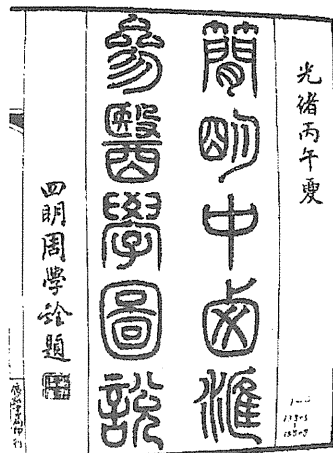 光緒丙午夏
簡明中西滙
參醫學圖說
四明周學銓題